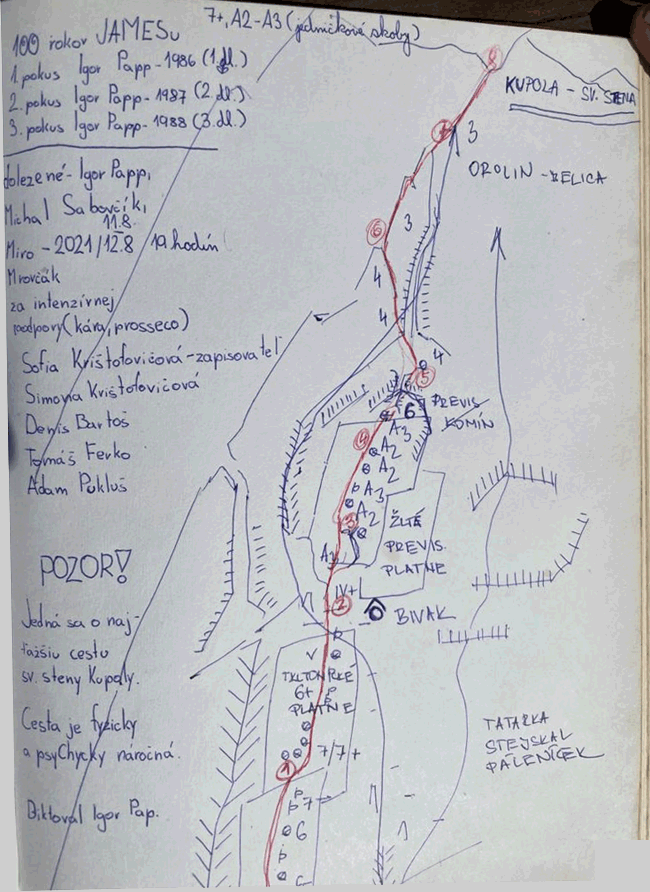 7+, A2-A3 (jedničkové skoby)
100 rokov JAMESu
1. pokus Igor Papp - 1986 (1.dl.)
2. pokus Igor Papp - 1987 (2.dl.)
3. pokus Igor Papp - 1988 (3.dl.)
dolezené - Igor Papp,
Michal Sabovčík,
11.8.
Miro - 2021/12.8 19 hodín
Mrovčák
za intenzívnej
podpory (kára, prosseco)
Sofia Krištofovičová - zapisovateľ
Simona Krištofovičová
Denis Bartoš
Tomáš Ferko
Adam Pukluš
POZOR!
Jedná sa o naj-
ťažšiu cestu
sv. steny Kupoly.
Cesta je fyzicky
a psyChycky náročná.
Diktoval Igor Pap.
KUPOLA - SV. STENA
8
7
3
OROLIN - ZELICA
6
3
4
4
4
5
PREVIS
KOMÍN
6
A3
4
A2
A2
A3
A2
3
A2
ŽLTÉ
PREVIS.
PLATNE
IV+
2
BIVAK
V
6+
PLATNE
7/7+
1
7-
6
TATARKA
STEJSKAL
PÁLENÍČEK